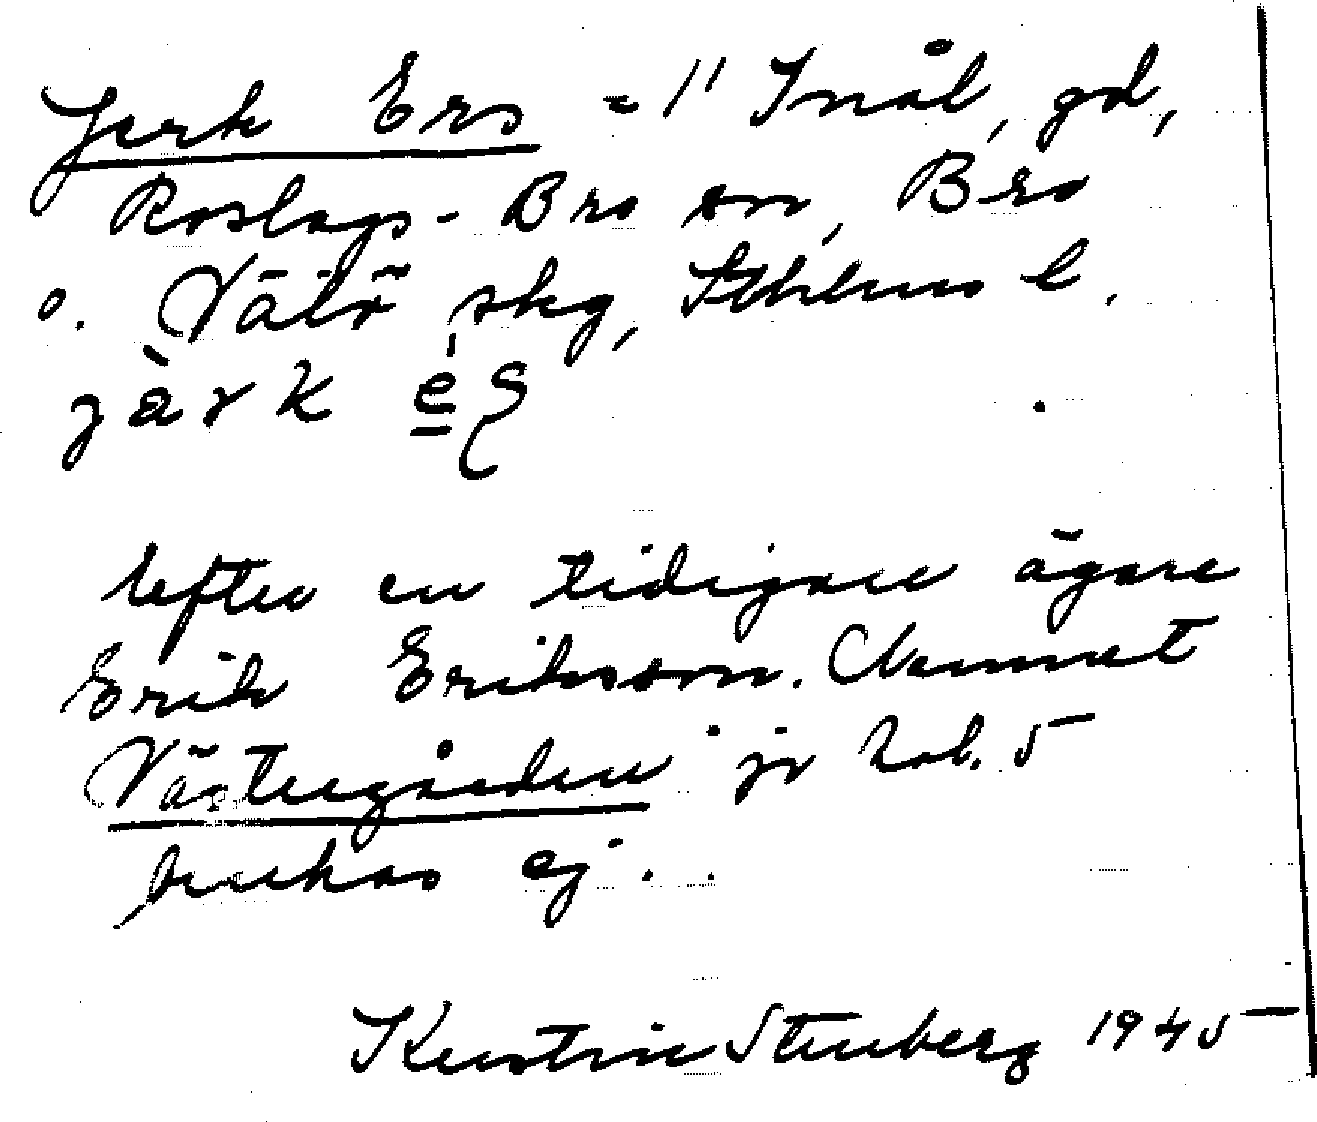 Jerk Ers = 1" Inål, gd,
Roslags-Bro sn, Bro
o. Vätö skg, Sthlms l.
järk
Efter en tidigare ägare
Erik Eriksson. Namnet
Västergården jr kol. 5
brukas ej.
Kerstin Stenberg 1945